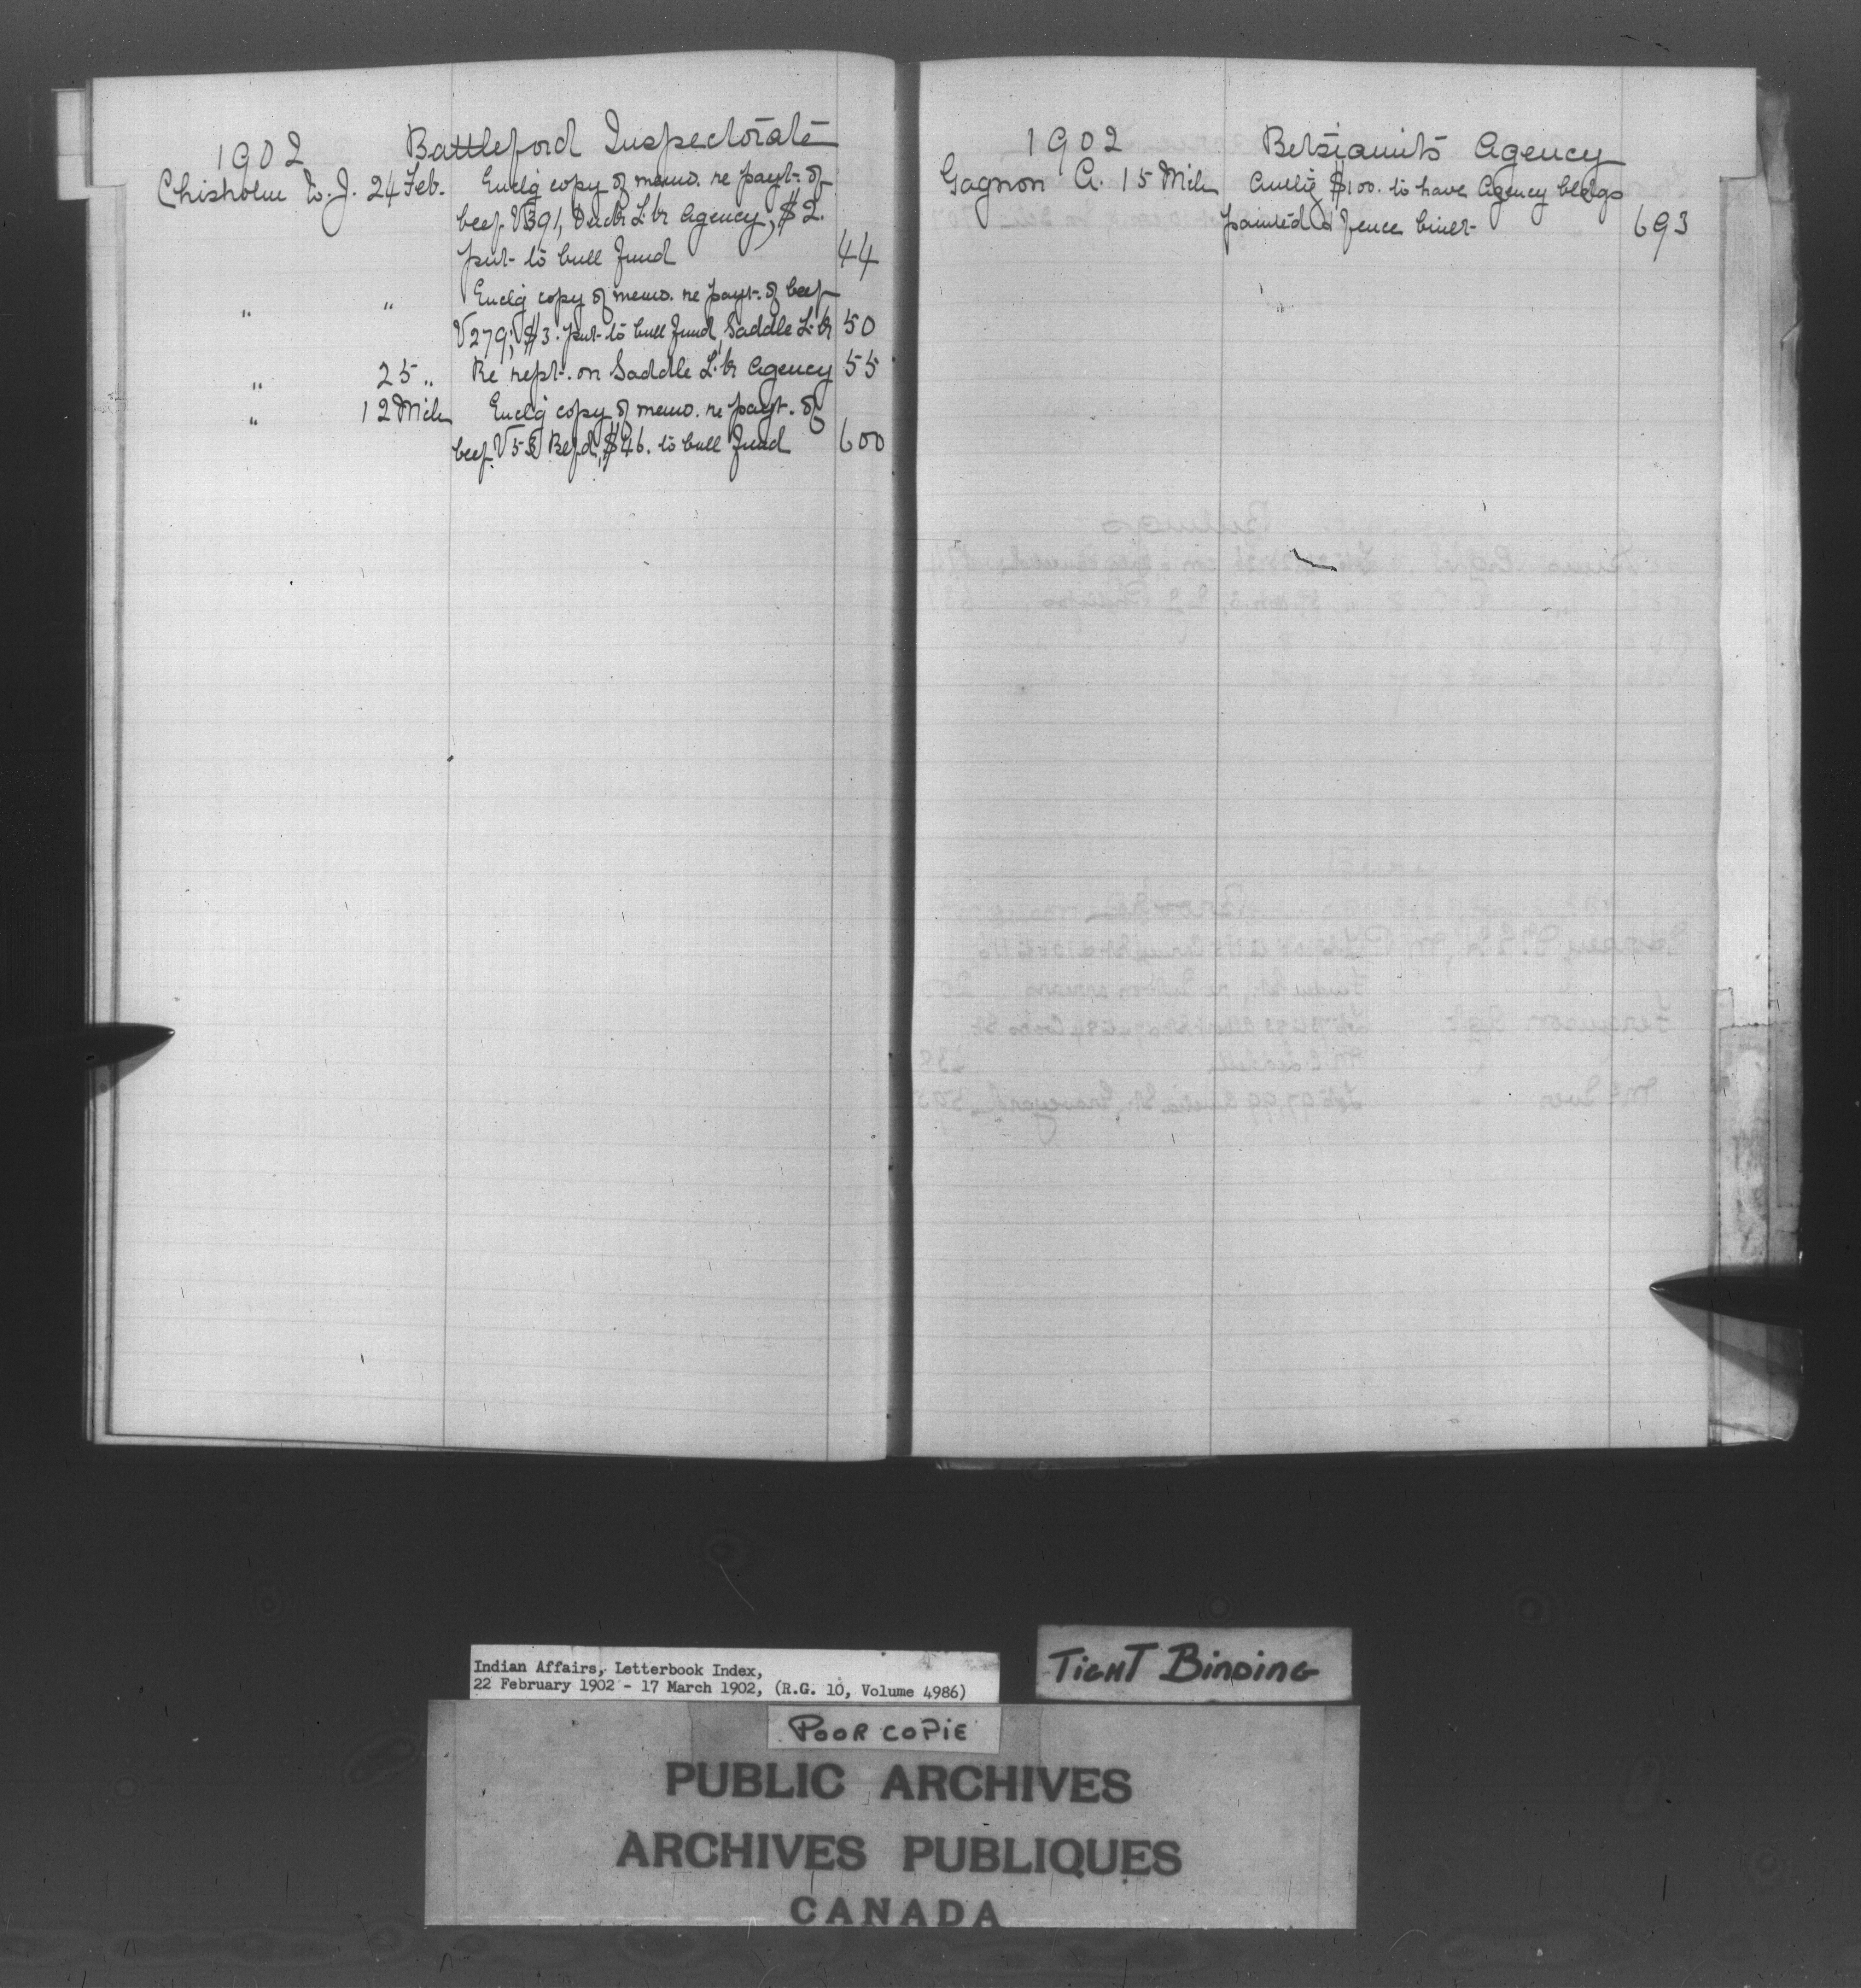 1902 Battleford Inspectorate
Chisholm W. J. 24 Feb. Enclg copy of memo. re payt. of
beef V391, Duck L. Agency, $2.
put to bull fund 44
" " Enclg copy of memo. re payt. of beef
V279; $3. put to bull fund, Saddle L. 50
" 25 " Re rept. on Saddle L. Agency 55
" 12 Mch Enclg copy of memo. re payt. of
beef Batfd, $46. to bull fund 600
1902 Betsiamits Agency
Gagnon A. 15 Mch Authg $100. to have Agency bldgs
painted & fence built 693
Indian Affairs, Letterbook Index,
22 February 1902 - 17 March 1902, (R.G. 10, Volume 4986)
TIGHT BINDING
POOR COPIE
PUBLIC ARCHIVES
ARCHIVES PUBLIQUES
CANADA